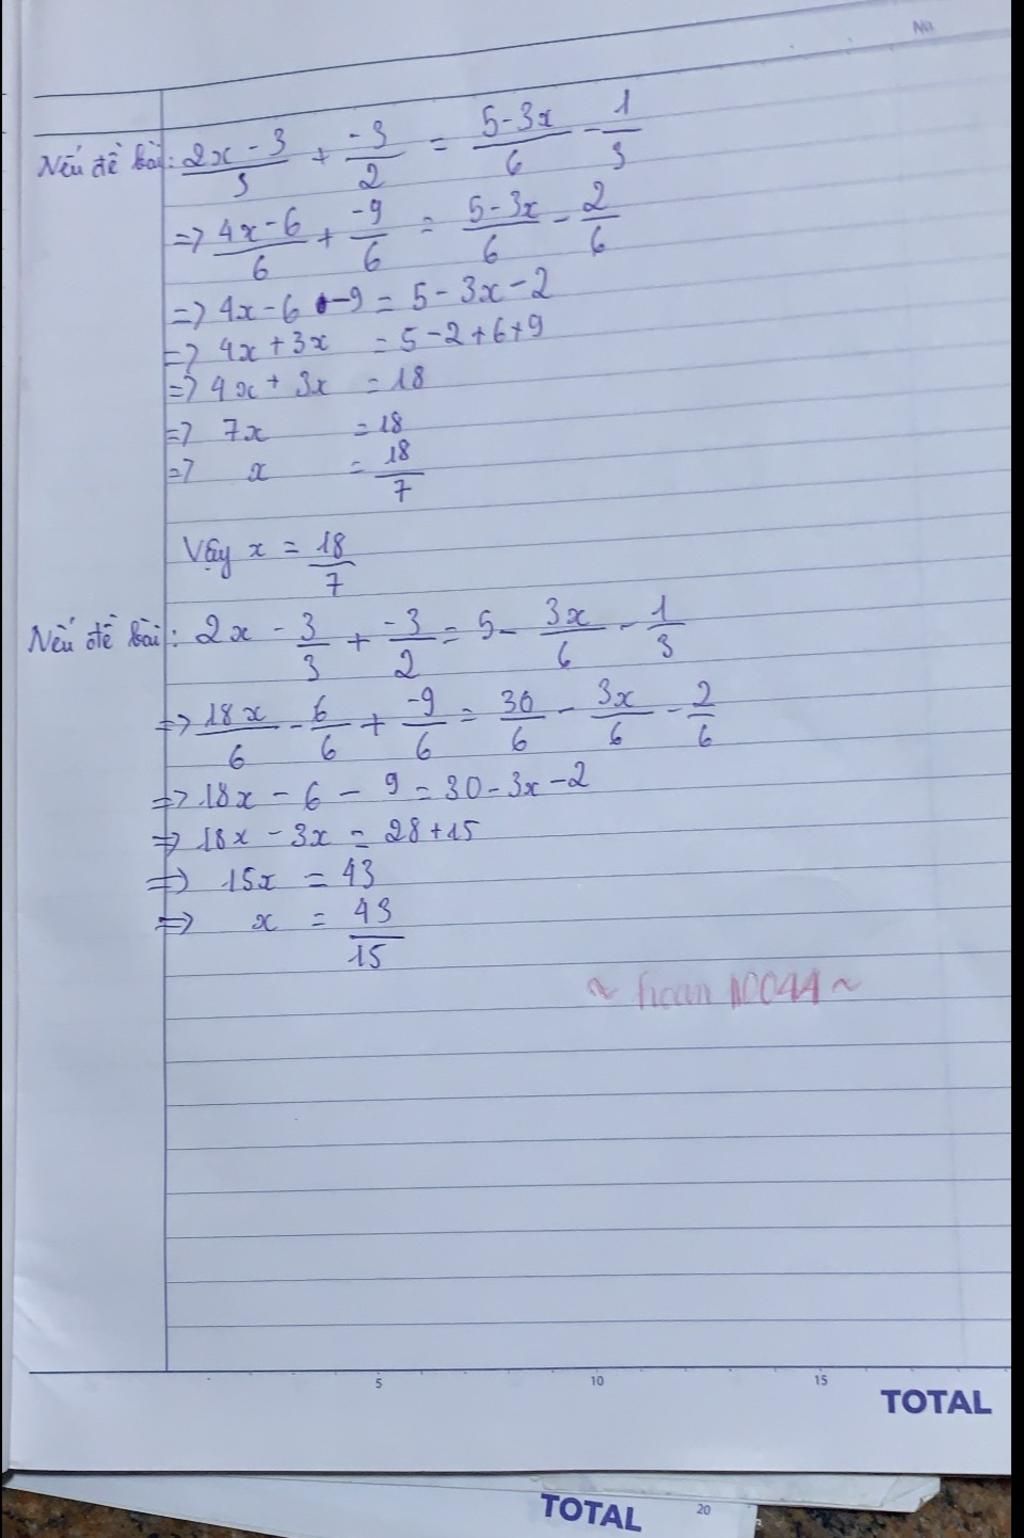 No.
Nếu đề bài: (2x - 3)/3 + (-3)/2 = (5 - 3x)/6 - 1/3
=> (4x - 6)/6 + (-9)/6 = (5 - 3x)/6 - 2/6
=> 4x - 6 - 9 = 5 - 3x - 2
=> 4x + 3x = 5 - 2 + 6 + 9
=> 4x + 3x = 18
=> 7x = 18
=> x = 18/7
Vậy x = 18/7
Nếu đề bài: 2x - 3/3 + (-3)/2 = 5 - 3x/6 - 1/3
=> 18x/6 - 6/6 + (-9)/6 = 30/6 - 3x/6 - 2/6
=> 18x - 6 - 9 = 30 - 3x - 2
=> 18x - 3x = 28 + 15
=> 15x = 43
=> x = 43/15
5 10 15
TOTAL
TOTAL 20